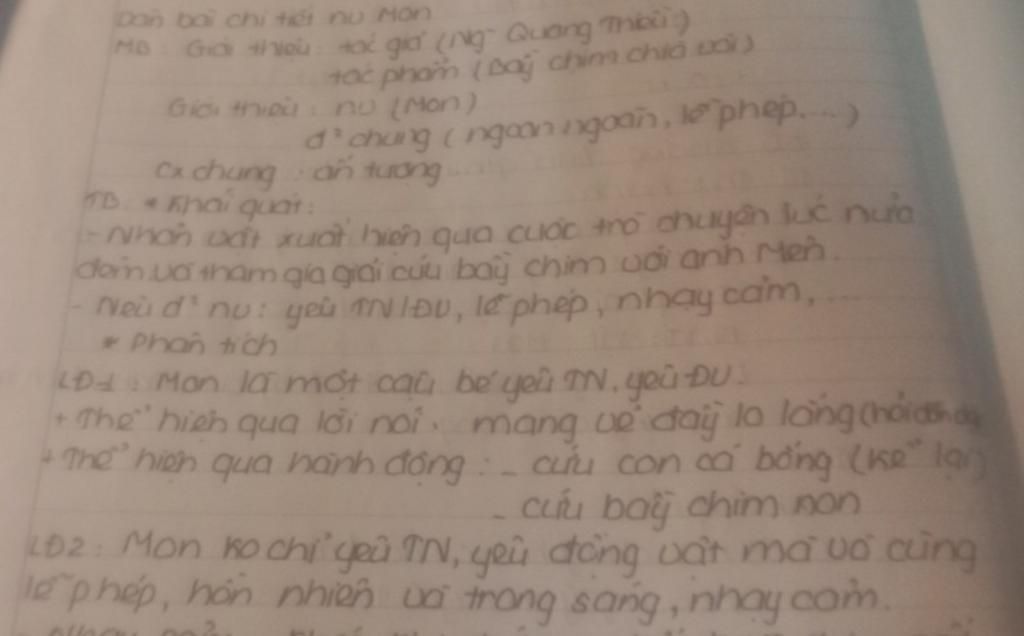 Dàn bài chi tiết nv Mon
MB: Giới thiệu: tác giả (Ng~ Quang Thiều)
tác phẩm (Bầy chim chìa vôi)
Giới thiệu: nv (Mon)
đ² chung (ngoan ngoãn, lễ phép...)
cx chung: ấn tượng
TB: * Khái quát:
- Nhân vật xuất hiện qua cuộc trò chuyện lúc nửa
đêm và tham gia giải cứu bầy chim với anh Mên.
- Nêu đ² nv: yêu TN/ĐV, lễ phép, nhạy cảm,...
* Phân tích
LĐ1: Mon là một cậu bé yêu TN, yêu ĐV.
+ Thể hiện qua lời nói: mang vẻ đầy lo lắng (hỏi
+ Thể hiện qua hành động: - cứu con cá bống (kể lại)
- cứu bầy chim non
LĐ2: Mon ko chỉ yêu TN, yêu động vật mà vô cùng
lễ phép, hồn nhiên và trong sáng, nhạy cảm.